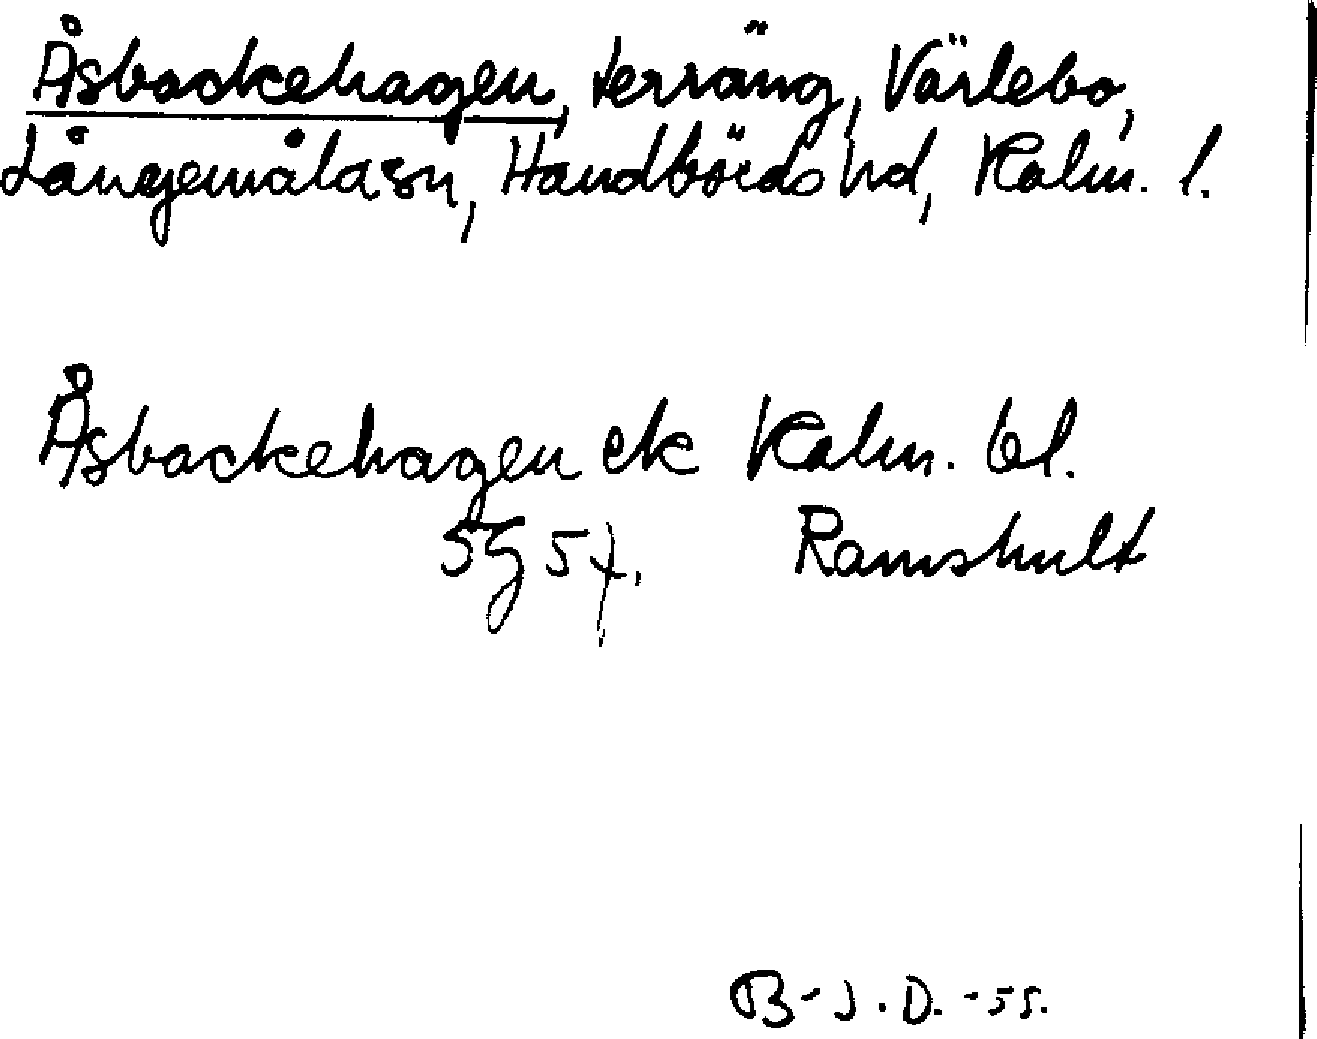 Åsbackehagen, terräng, Värlebo,
Långemåla sn, Handbörds hd, Kalm. l.
Åsbackehagen ek Kalm. bl.
5G 5f, Ramshult
B-J.D. -55.